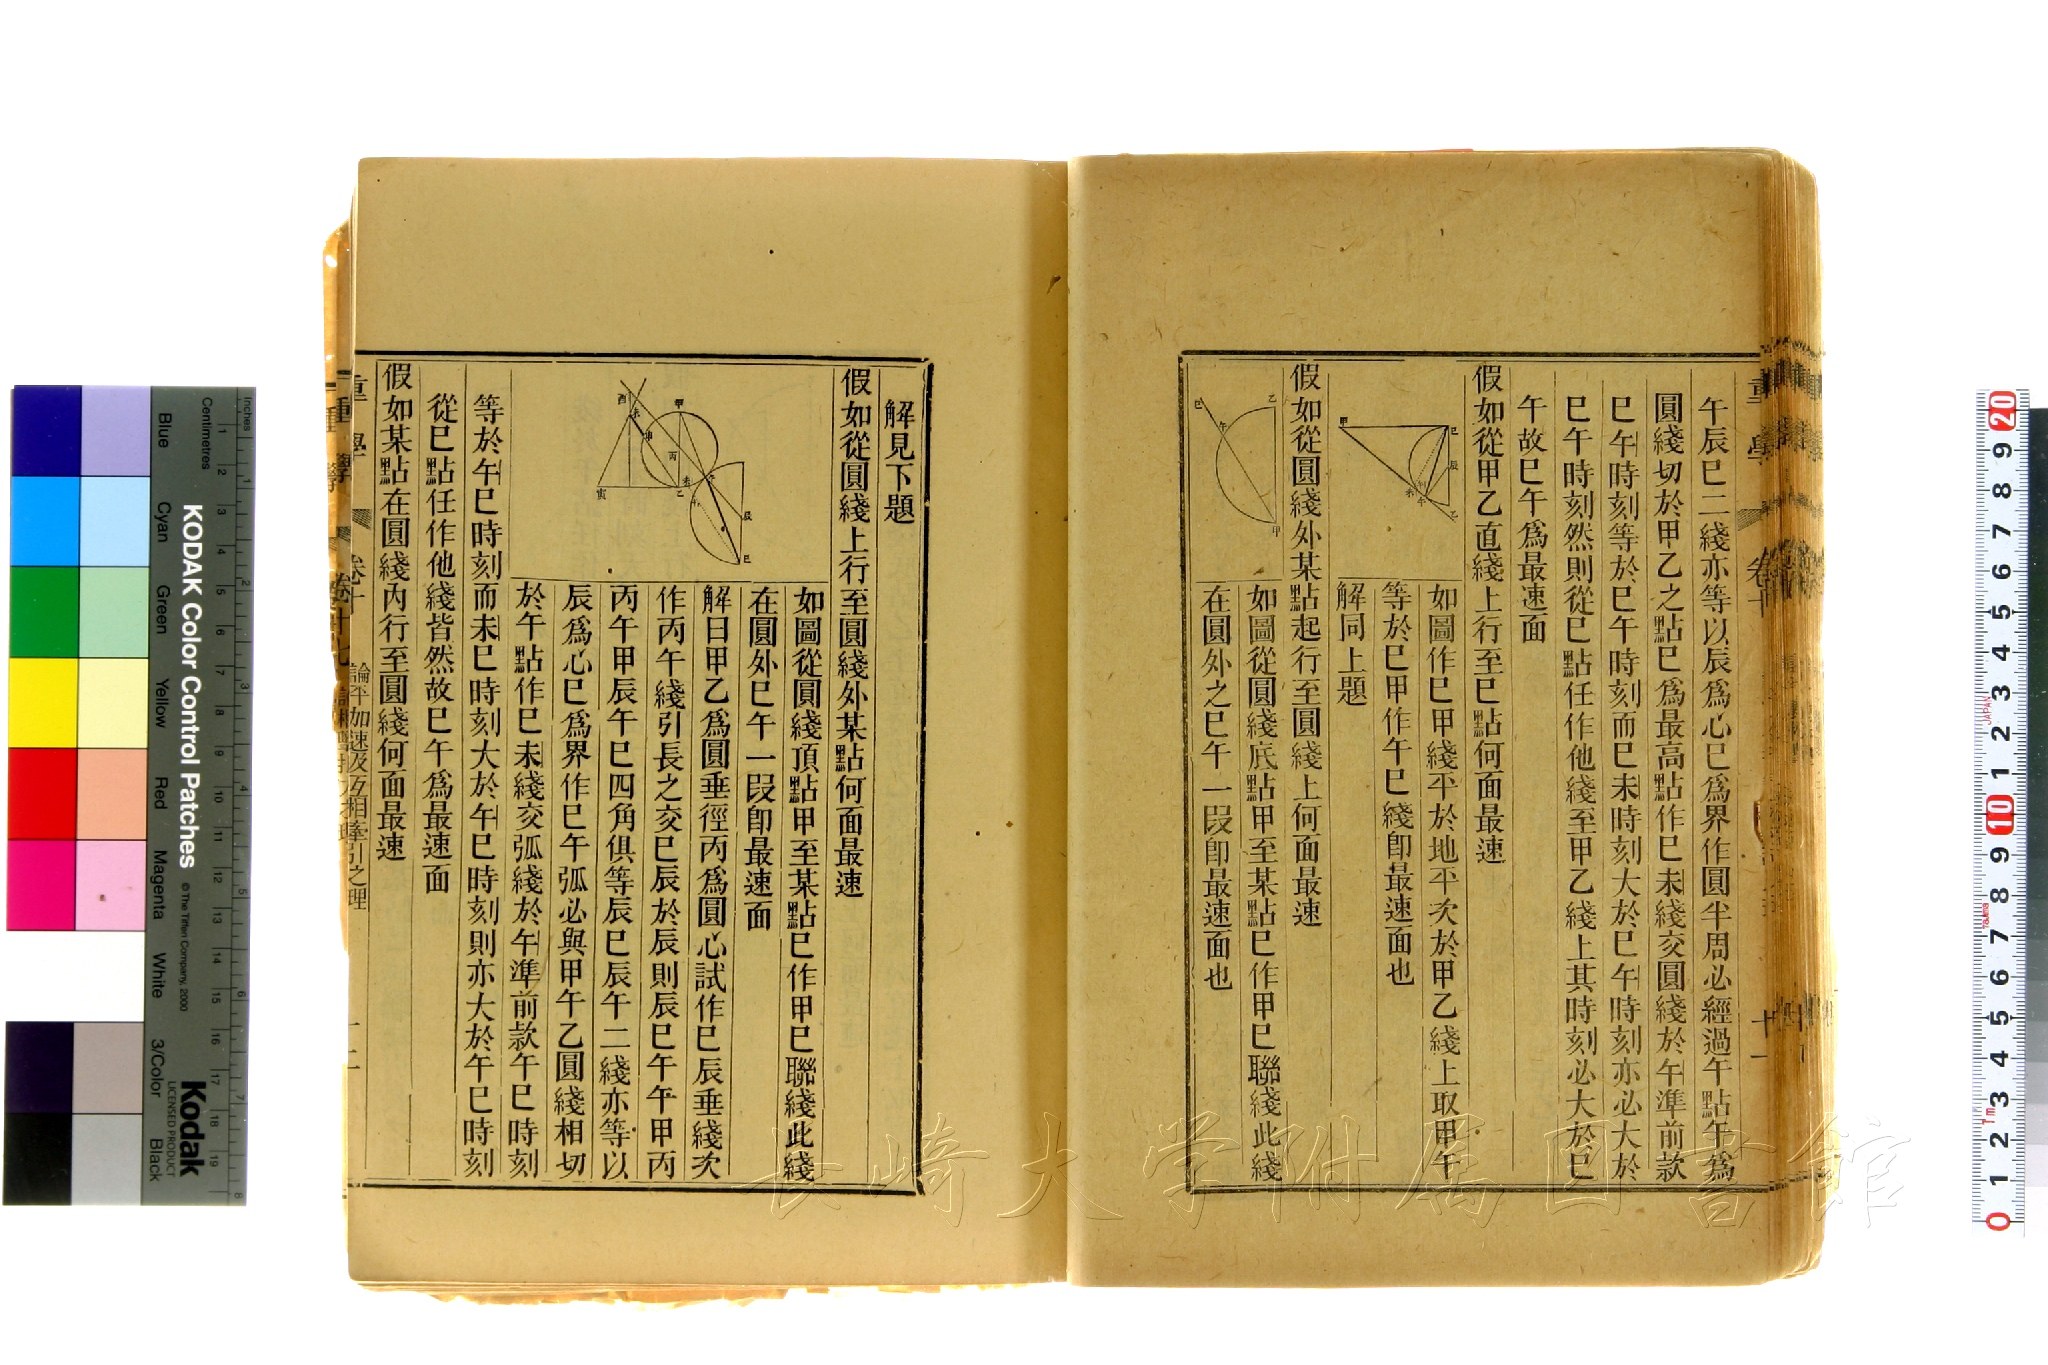 午辰巳二綫亦等以辰爲心巳爲界作圓半周必經過午點午爲
圓綫切於甲乙之點巳爲最高點作巳未綫交圓綫於午準前款
巳午時刻等於巳午時刻而巳未時刻大於巳午時刻亦必大於
巳午時刻然則從巳點任作他綫至甲乙綫上其時刻必大於巳
午故巳午爲最速面
假如從甲乙直綫上行至巳點何面最速
如圖作巳甲綫平於地平次於甲乙綫上取甲午
等於巳甲作午巳綫卽最速面也
解同上題
假如從圓綫外某點起行至圓綫上何面最速
如圖從圓綫底點甲至某點巳作甲巳聯綫此綫
在圓外之巳午一段卽最速面也
解見下題
假如從圓綫上行至圓綫外某點何面最速
如圖從圓綫頂點甲至某點巳作甲巳聯綫此綫
在圓外巳午一段卽最速面
解曰甲乙爲圓垂徑丙爲圓心試作巳辰垂綫次
作丙午綫引長之交巳辰於辰則辰巳午午甲丙
丙午甲辰午巳四角俱等辰巳辰午二綫亦等以
辰爲心巳爲界作巳午弧必與甲午乙圓綫相切
於午點作巳未綫交弧綫於午準前款午巳時刻
等於午巳時刻而未巳時刻大於午巳時刻則亦大於午巳時刻
從巳點任作他綫皆然故巳午爲最速面
假如某點在圓綫內行至圓綫何面最速
重學
卷十
論平加速及互相牽引之理
十二
重學
卷十
十一
長崎大学附属図書館
KODAK Color Control Patches
© The Tiffen Company, 2000
Kodak
LICENSED PRODUCT
Inches
Centimetres
Blue
Cyan
Green
Yellow
Red
Magenta
White
3/Color
Black